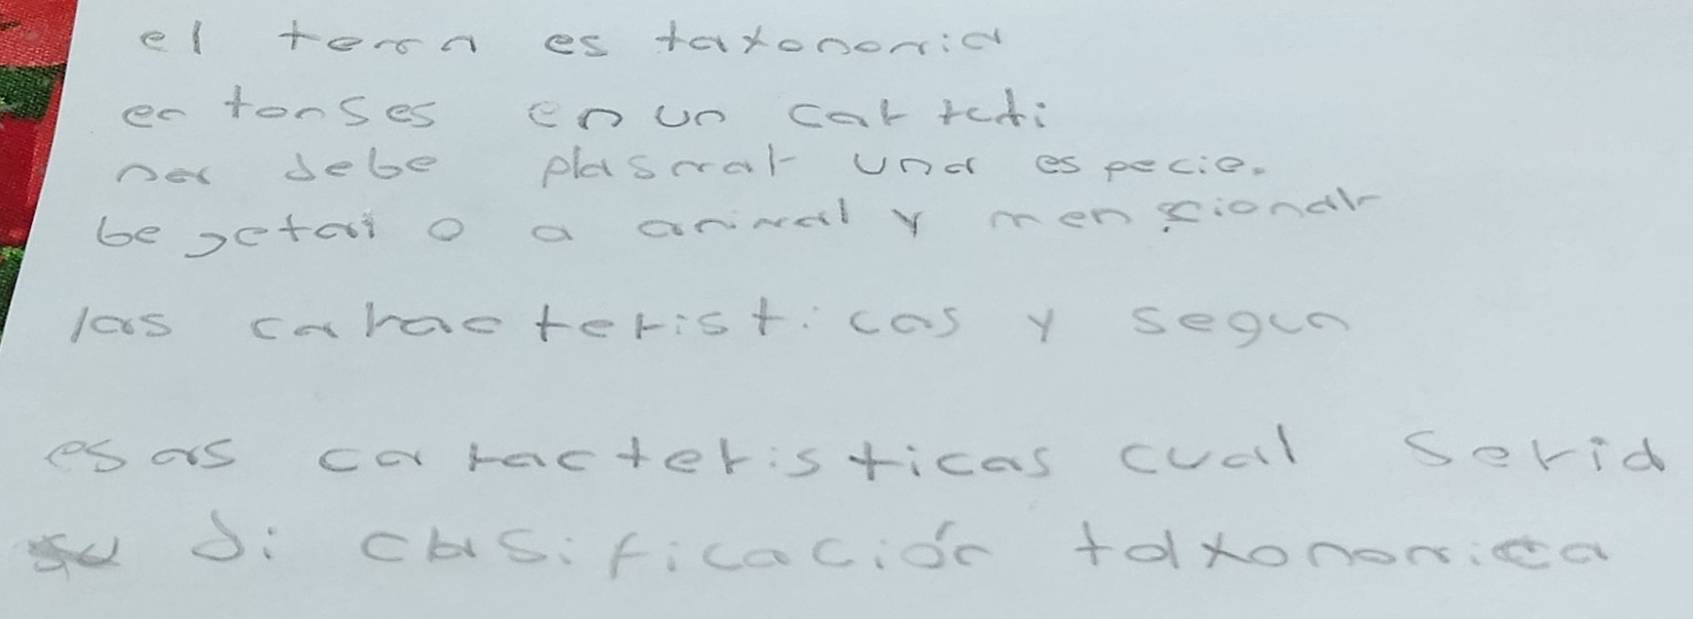 el tema es taxonomia
en tonses en un car teti
na debe plasmar una especie.
be getal o a animal y men sionar
las carac teristicas y segun
esas caracteristicas cual seria
su di clasificación taxonomica